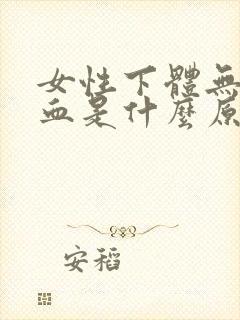 女性下體無
血是什麼原
安稻